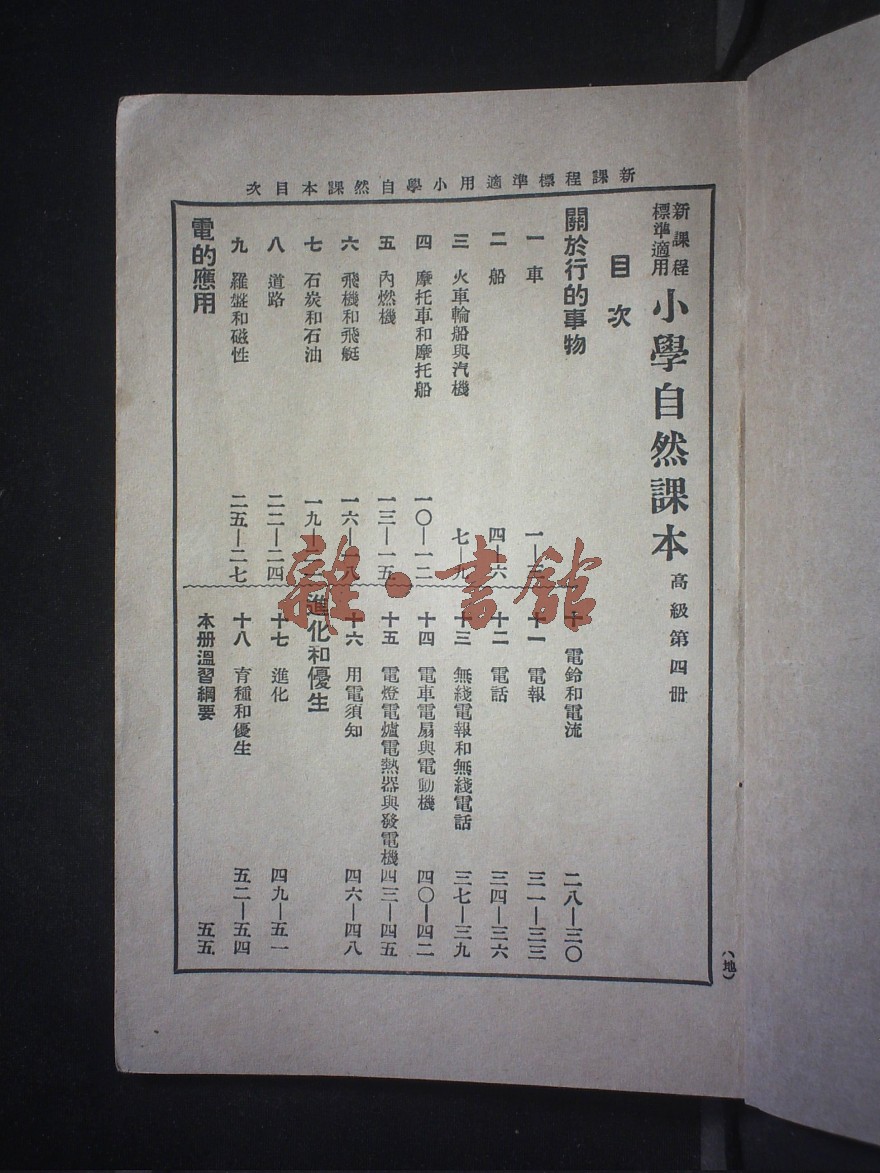 新課程標準適用小學自然課本目次
新課程標準適用 小學自然課本 高級第四册
目次
關於行的事物
一 車 一—三
二 船 四—六
三 火車輪船與汽機 七—九
四 摩托車和摩托船 一〇—一二
五 內燃機 一三—一五
六 飛機和飛艇 一六—一八
七 石炭和石油 一九—
八 道路 二二—二四
九 羅盤和磁性 二五—二七
電的應用
十 電鈴和電流 二八—三〇
十一 電報 三一—三三
十二 電話 三四—三六
十三 無綫電報和無綫電話 三七—三九
十四 電車電扇與電動機 四〇—四二
十五 電燈電爐電熱器與發電機 四三—四五
十六 用電須知 四六—四八
進化和優生
十七 進化 四九—五一
十八 育種和優生 五二—五四
本册溫習綱要 五五
(地)
雜·書館